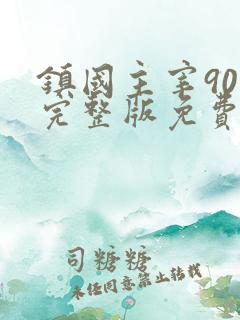 鎮國主宰90
完整版免費
司糖糖
未经同意禁止转载